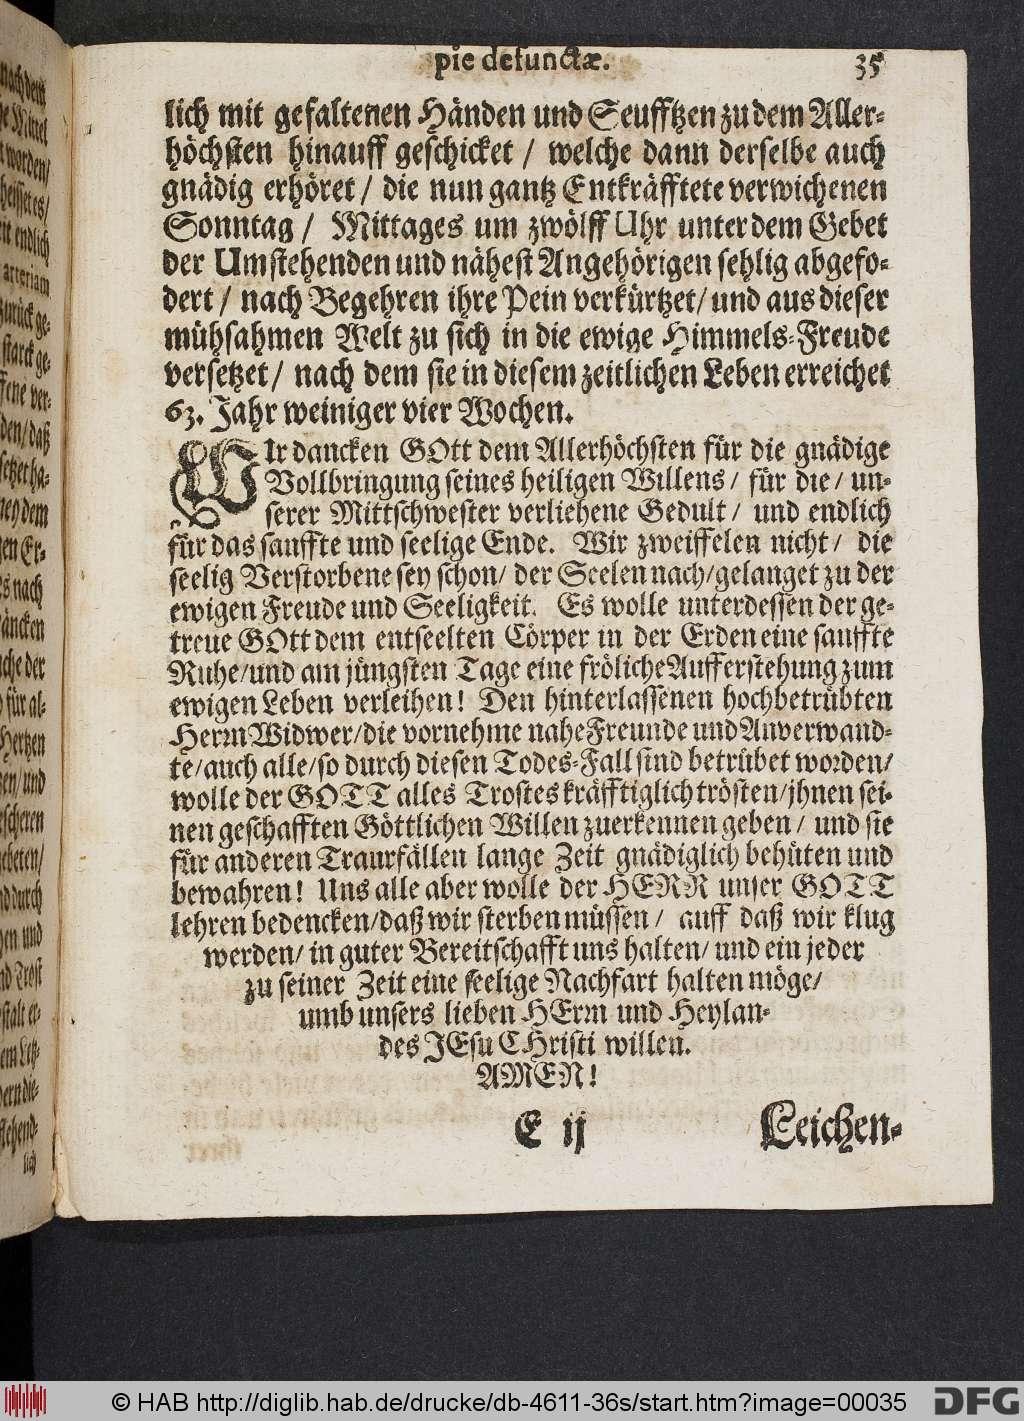 pie defunctæ. 35
lich mit gefaltenen Händen und Seufftzen zu dem Aller-
höchsten hinauff geschicket / welche dann derselbe auch
gnädig erhöret / die nun gantz Entkräfftete verwichenen
Sonntag / Mittages um zwölff Uhr unter dem Gebet
der Umstehenden und nähest Angehörigen sehlig abgefo-
dert / nach Begehren ihre Pein verkürtzet / und aus dieser
mühsahmen Welt zu sich in die ewige Himmels-Freude
versetzet / nach dem sie in diesem zeitlichen Leben erreichet
63. Jahr weiniger vier Wochen.
WIr dancken GOtt dem Allerhöchsten für die gnädige
Vollbringung seines heiligen Willens / für die / un-
serer Mittschwester verliehene Gedult / und endlich
für das sanffte und seelige Ende. Wir zweiffelen nicht / die
seelig Verstorbene sey schon / der Seelen nach / gelanget zu der
ewigen Freude und Seeligkeit. Es wolle unterdessen der ge-
treue GOtt dem entseelten Cörper in der Erden eine sanffte
Ruhe / und am jüngsten Tage eine fröliche Aufferstehung zum
ewigen Leben verleihen! Den hinterlassenen hochbetrübten
Herrn Widwer / die vornehme nahe Freunde und Anverwand-
te / auch alle / so durch diesen Todes-Fall sind betrübet worden /
wolle der GOTT alles Trostes kräfftiglich trösten / jhnen sei-
nen geschafften Göttlichen Willen zuerkennen geben / und sie
für anderen Traurfällen lange Zeit gnädiglich behüten und
bewahren! Uns alle aber wolle der HERR unser GOTT
lehren bedencken / daß wir sterben müssen / auff daß wir klug
werden / in guter Bereitschafft uns halten / und ein jeder
zu seiner Zeit eine seelige Nachfart halten möge /
umb unsers lieben HErrn und Heylan-
des JEsu CHristi willen.
AMEN!
E ij Leichen-
© HAB http://diglib.hab.de/drucke/db-4611-36s/start.htm?image=00035 DFG